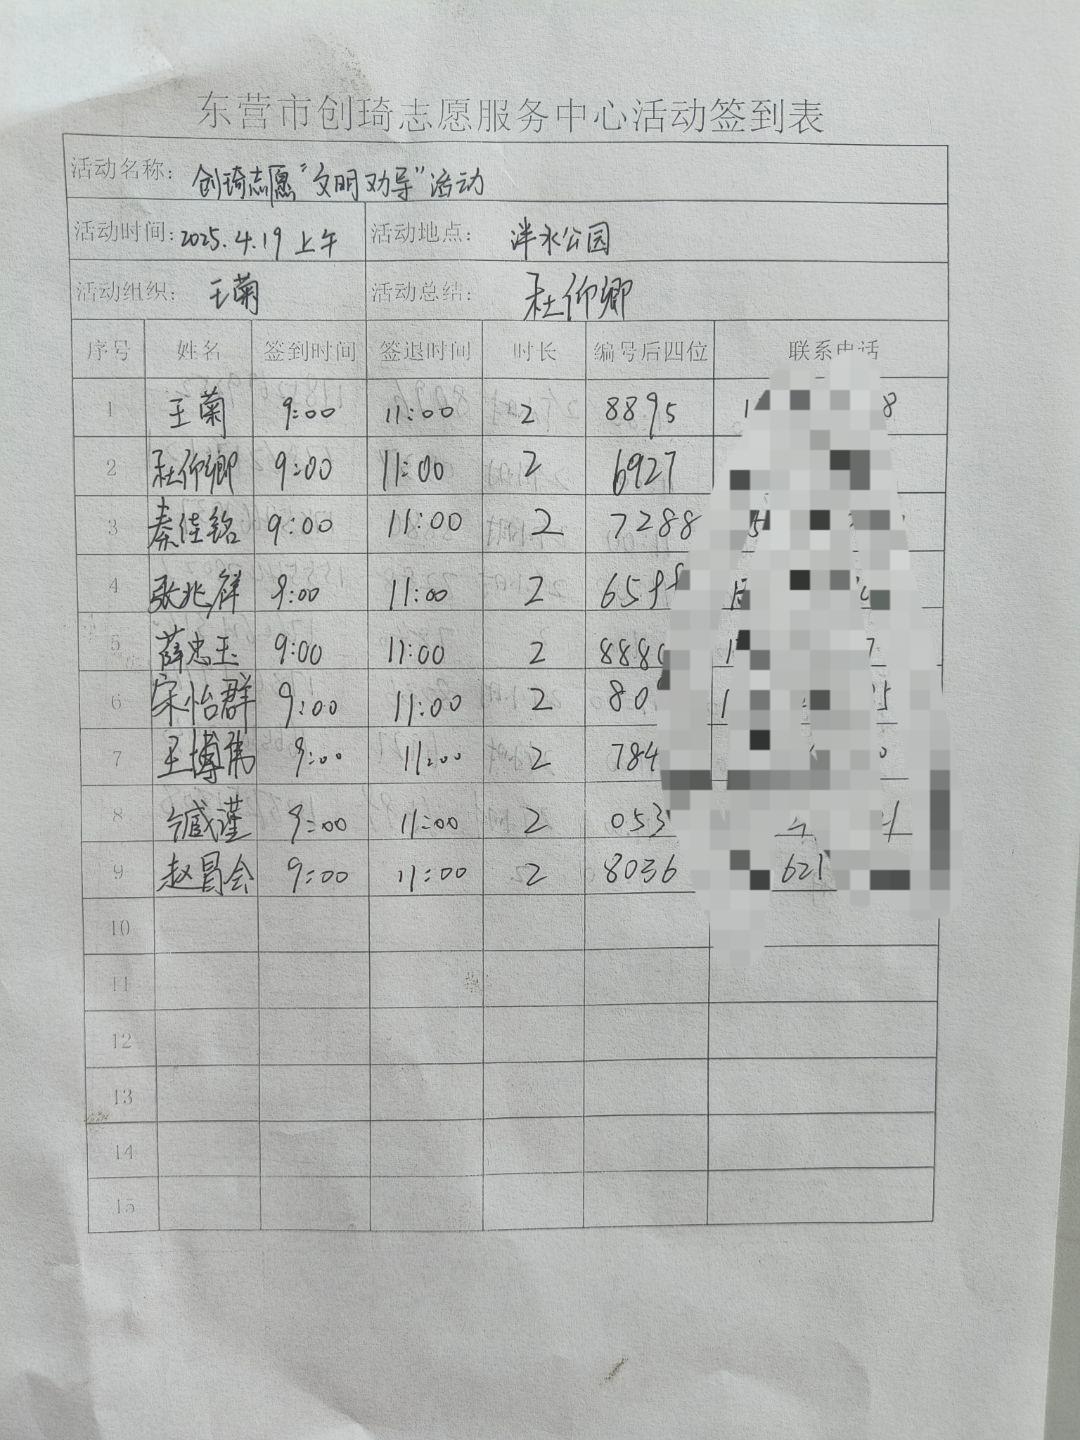 东营市创琦志愿服务中心活动签到表
活动名称：创琦志愿“文明劝导”活动
活动时间：2025.4.19上午 活动地点：泮水公园
活动组织：王菊 活动总结：杜仰卿
序号 姓名 签到时间 签退时间 时长 编号后四位 联系电话
1 王菊 9:00 11:00 2 8895
2 杜仰卿 9:00 11:00 2 6927
3 秦佳铭 9:00 11:00 2 7288
4 张兆祥 9:00 11:00 2 65
5 薛忠玉 9:00 11:00 2 888
6 宋怡群 9:00 11:00 2 80
7 王博伟 9:00 11:00 2 784
8 臧瑾 9:00 11:00 2 053
9 赵昌会 9:00 11:00 2 8036 621
10
11
12
13
14
15